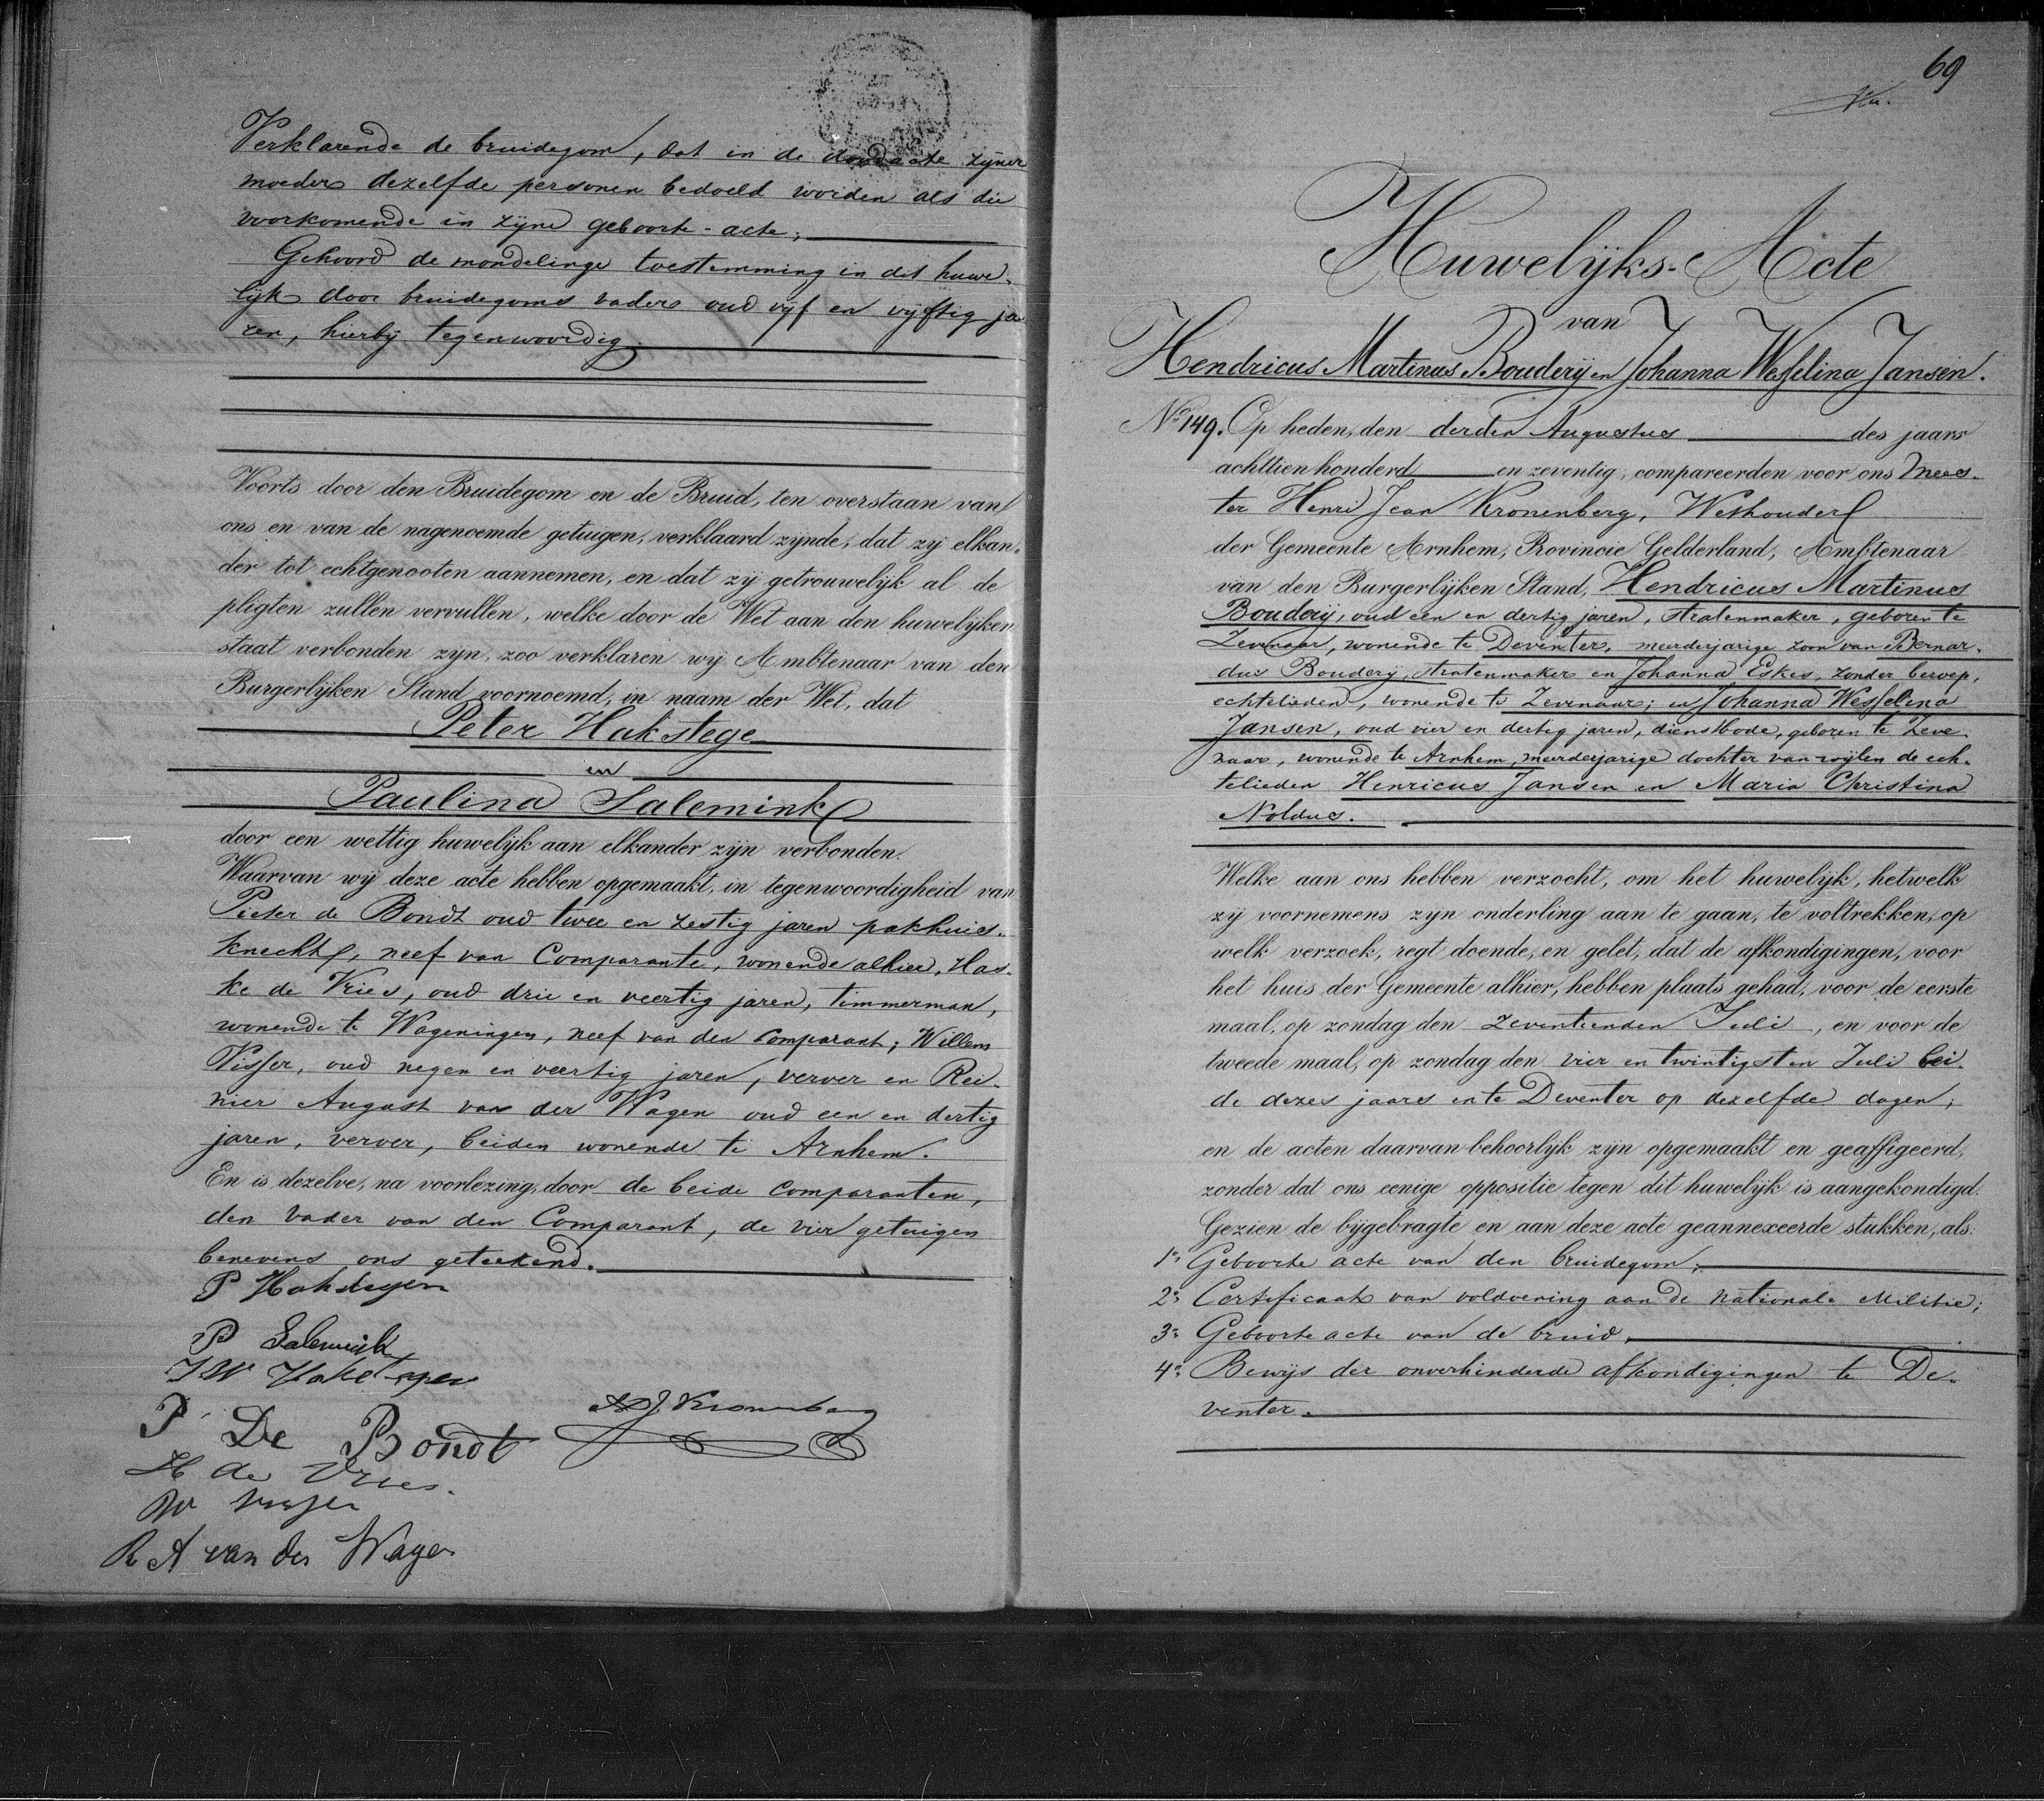 Verklarende de bruidegom, dat in de doodacte zijner
moeder dezelfde personen bedoeld worden als die
voorkomende in zijne geboorte-acte;
Gehoord de mondelinge toestemming in dit huwe-
lijk door bruidegoms vader oud vijf en vijftig ja
ren, hierbij tegenwoordig.
Voorts door den Bruidegom en de Bruid, ten overstaan van
ons en van de nagenoemde getuigen, verklaard zijnde, dat zij elkan-
der tot echtgenooten aannemen, en dat zij getrouwelijk al de
pligten zullen vervullen, welke door de Wet aan den huwelijken
staat verbonden zijn, zoo verklaren wij Ambtenaar van den
Burgerlijken Stand voornoemd, in naam der Wet, dat
Peter Hakstege
en
Paulina Salemink
door een wettig huwelijk aan elkander zijn verbonden.
Waarvan wij deze acte hebben opgemaakt, in tegenwoordigheid van
Pieter de Bondt oud twee en zestig jaren pakhuis-
knecht, neef van Comparante, wonende alhier, Has-
ke de Vries, oud drie en veertig jaren, timmerman,
wonende te Wageningen, neef van den Comparant; Willem
Visser, oud negen en veertig jaren, verver en Rei-
nier August van der Wagen oud een en dertig
jaren, verver, beiden wonende te Arnhem.
En is dezelve, na voorlezing, door de beide Comparanten,
den Vader van den Comparant, de vier getuigen
benevens ons geteekend.
P Hakstegen
P Salemink
JW Hakstegen
HJ Kronenberg
P De Bondt
H de Vries.
W Visser
R A van der Wagen
69
Huwelijks-Acte
van
Hendricus Martinus Bouderij en Johanna Wesselina Jansen.
No 149. Op heden, den derden Augustus des jaars
achttienhonderd en zeventig, compareerden voor ons Mees-
ter Henri Jean Kronenberg, Wethouder
der Gemeente Arnhem, Provincie Gelderland, Ambtenaar
van den Burgerlijken Stand, Hendricus Martinus
Bouderij, oud een en dertig jaren, stratenmaker, geboren te
Zevenaar, wonende te Deventer, meerderjarige zoon van Bernar-
dus Bouderij, stratenmaker en Johanna Eskes, zonder beroep,
echtelieden, wonende te Zevenaar; en Johanna Wesselina
Jansen, oud vier en dertig jaren, dienstbode, geboren te Zeve-
naar, wonende te Arnhem, meerderjarige dochter van wijlen de ech-
telieden Henricus Jansen en Maria Christina
Noldus.
Welke aan ons hebben verzocht, om het huwelijk, hetwelk
zij voornemens zijn onderling aan te gaan, te voltrekken, op
welk verzoek, regt doende, en gelet, dat de afkondigingen, voor
het huis der Gemeente alhier, hebben plaats gehad, voor de eerste
maal, op zondag den zeventienden Juli, en voor de
tweede maal, op zondag den vier en twintigsten Juli bei-
de dezes jaars en te Deventer op dezelfde dagen;
en de acten daarvan behoorlijk zijn opgemaakt en geaffigeerd,
zonder dat ons eenige oppositie tegen dit huwelijk is aangekondigd.
Gezien de bijgebragte en aan deze acte geannexeerde stukken, als:
1o Geboorte acte van den bruidegom,
2o Certificaat van voldoening aan de nationale Militie;
3o Geboorte acte van de bruid,
4o Bewijs der onverhinderde afkondigingen te De-
venter.